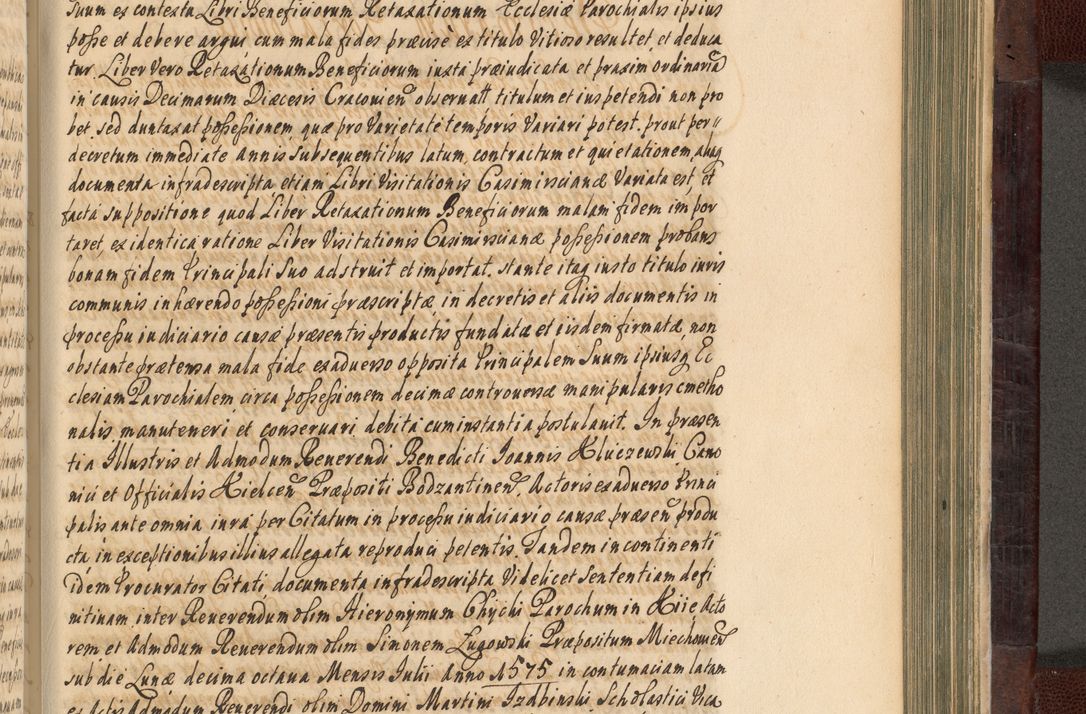 suum ex contexta Libri Beneficiorum Retaxationum Ecclesiæ Parochialis ipsius
posse et debere argui cum mala fides præcisè ex titulo Vitioso resultet et deduca
tur. Liber Vero Retaxationum Beneficiorum iuxta præiudicata et praxim ordinariā
in causis Decimarum Diæcesis Cracovien̄ observatt titulum et ius petendi non pro
bet, sed duntaxat possessionem, quæ pro Varietate temporis Variari potest, prout per
decretum immediate annis subsequentibus latum, contractum et quietationem, aliaq
documenta infradescripta, etiam Libri Visitationis Casimirscianæ Variata est, et
factá suppositione quod Liber Retaxationum Beneficiorum malam fidem impor
taret, ex identica ratione Liber Visitationis Casimirscianæ possessionem probans
bonam fidem Principali suo adstruit et importat, stante itaq iusto titulo iuris
communis inhærendo possessioni præscriptæ, in decretis et aliis documentis in
processu iudiciario causæ præsentis productis fundatæ et iisdem firmatæ, non
obstante prætensa mala fide exadverso opposita Principalem Suum ipsiusq Ec
clesiam Parochialem, circa possessionem decimæ controversæ manipularis cmetho
nalis, manuteneri et conservari debita cum instantia postulavit. In præsen
tia Illustris et Admodum Reverendi Benedicti Ioannis Kluczewski Cano
nici et Officialis Kielcen̄ Præpositi Bodzantinen̄, Actoris exadverso Princi
palis ante omnia iura per Citatum in processu iudiciario causæ præsen̄ produ
cta in exceptionibus illius allegata reproduci petentis. Tandem in continenti
idem Procurator Citati, documenta infradescripta Videlicet Sententiam defi
nitivam inter Reverendum olim Hieronymum Chycki Parochum in Kiie Acto
rem et Admodum Reverendum olim Simonem Lugowski Præpositum Miechovien̄
sub die Lunæ decima octava Mensis Iulii Anno 1575 in contumaciam latam
ex Actis Admodum Reverendi olim Domini Martini Izdbinski Scholastici Vica